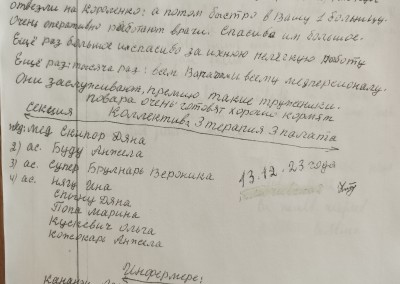 отвезли на короленко: а потом быстро в Вашу 1 больницу.
Очень оперативно работают врачи. Спасибо им большое.
Ещё раз большое испасиво за ихнюю нелёгкую работу
Ещё раз: тысяча раз: Вам Варагали всему медперсоналу.
Они заслуживают, премию такие труженики.
повара очень готовят хорошо кормят
секция Коллектив: 3 терапия 3 палата
мед Скипор Дяна
2) ас. Буду Анжела
3) ас. Супер Брулнарь Вероника 13.12.23 года
4) ас. Нягу Яна
Спыну Дяна
Попа Марина
Куцевич Ольга
Кожокарь Анжела
Инфермере: